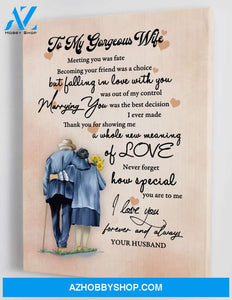 AZ
HOBBY SHOP
To My Gorgeous Wife
Meeting you was fate
Becoming your friend was a choice
but falling in love with you
was out of my control
Marrying You was the best decision
I ever made
Thank you for showing me
a whole new meaning
of LOVE
Never forget
how special
you are to me
I love you
forever and always
YOUR HUSBAND
AZHOBBYSHOP.COM